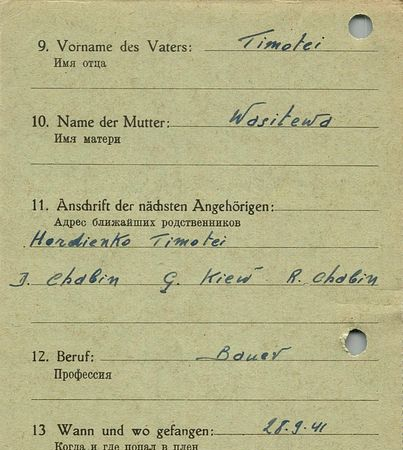 9. Vorname des Vaters: Timotei
Имя отца
10. Name der Mutter: Wasitewa
Имя матери
11. Anschrift der nächsten Angehörigen:
Адрес ближайших родственников
Hordienko Timotei
D. Chabin G. Kiew R. Chabin
12. Beruf: Bauer
Профессия
13 Wann und wo gefangen: 28.9.41
Когда и где попал в плен